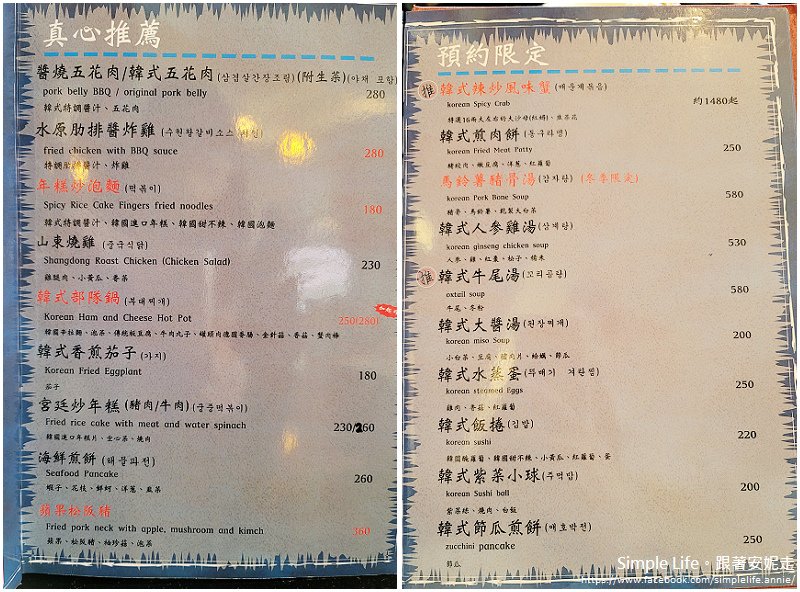 真心推薦
醬燒五花肉/韓式五花肉(삼겹살간장조림)(附生菜)(야채 포함)
pork belly BBQ / original pork belly
280
韓式特調醬汁、五花肉
水原肋排醬炸雞
fried chicken with BBQ sauce
280
特調肋排醬汁、炸雞
年糕炒泡麵(떡볶이)
Spicy Rice Cake Fingers fried noodles
180
韓式特調醬汁、韓國進口年糕、韓國甜不辣、韓國泡麵
山東燒雞(중국식닭)
Shangdong Roast Chicken (Chicken Salad)
230
雞腿肉、小黃瓜、香菜
韓式部隊鍋(부대찌개)
Korean Ham and Cheese Hot Pot
250/280
韓國辛拉麵、泡菜、傳統板豆腐、牛肉丸子、罐頭肉德國香腸、金針菇、香菇、蟹肉棒
韓式香煎茄子(가지)
Korean Fried Eggplant
180
茄子
宮廷炒年糕(豬肉/牛肉)(궁중떡볶이)
Fried rice cake with meat and water spinach
230/260
韓國進口年糕片、空心菜、燒肉
海鮮煎餅(해물파전)
Seafood Pancake
260
蝦子、花枝、鮮蚵、洋蔥、韭菜
蘋果松阪豬
Fried pork neck with apple, mushroom and kimch
360
蘋果、松阪豬、袖珍菇、泡菜
預約限定
推 韓式辣炒風味蟹
korean Spicy Crab
約1480起
韓式煎肉餅(동구라땡)
korean Fried Meat Patty
250
豬絞肉、嫩豆腐、洋蔥、紅蘿蔔
馬鈴薯豬骨湯(감자탕) (冬季限定)
korean Pork Bone Soup
580
豬骨、馬鈴薯、乾製大白菜
韓式人參雞湯(삼계탕)
korean ginseng chicken soup
530
人參、雞、紅棗、松子、糯米
推 韓式牛尾湯(꼬리곰탕)
oxtail soup
580
牛尾、冬粉
韓式大醬湯(된장찌개)
korean miso Soup
200
小白菜、豆腐、豬肉片、蛤蠣、節瓜
韓式水蒸蛋(뚝배기 계란찜)
korean steamed Eggs
250
雞肉、香菇、紅蘿蔔
韓式飯捲(김밥)
korean sushi
220
韓國醃蘿蔔、韓國甜不辣、小黃瓜、紅蘿蔔、蛋
韓式紫菜小球(주먹밥)
korean Sushi ball
紫菜絲、燒肉、白飯
韓式節瓜煎餅(애호박전)
zucchini pancake
250
節瓜
Simple Life。跟著安妮走
https://www.facebook.com/simplelife.annie/